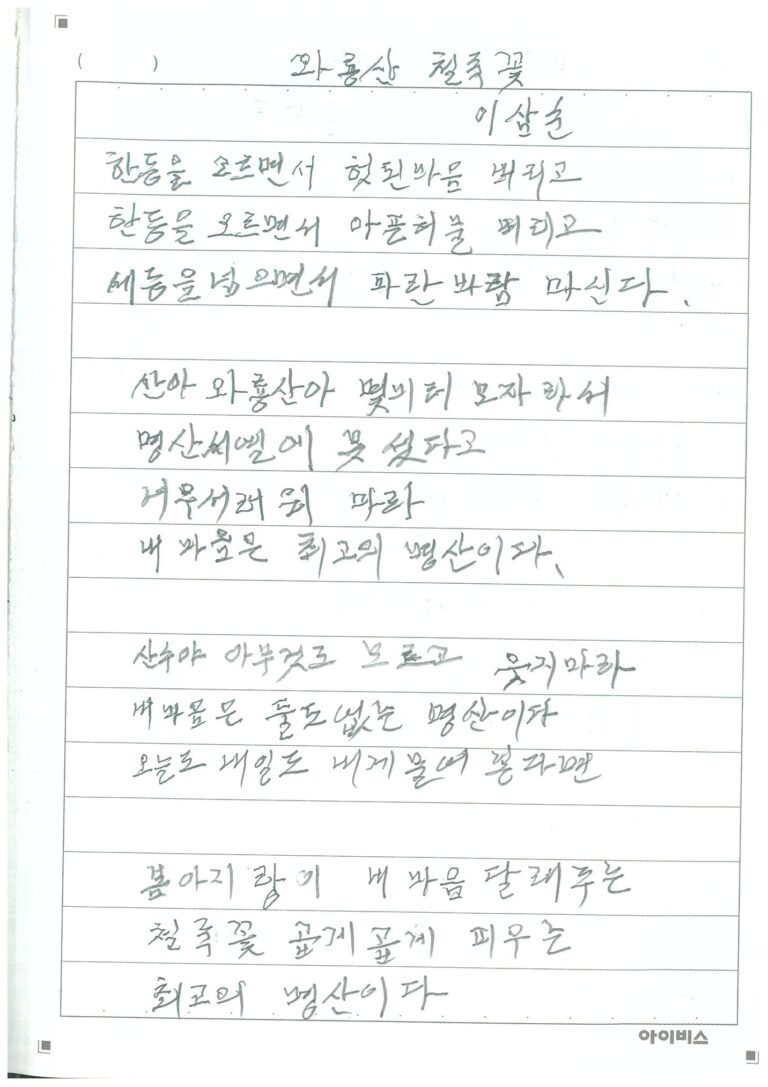 ( ) 와룡산 철죽꽃
이삼순
한등을 오르면서 헛된마음 버리고
한등을 오르면서 아픈허물 버리고
세등을넘으면서 파란바람 마신다.
산아 와룡산아 몇미터 모자라서
명산 에 못 섰다고
서러워 마라
내 마음은 최고의 명산이다.
산수야 아무것도 모르고 웃지마라
내마음은 둘도없는 명산이다
오늘도 내일도 내게 물어 본다면
봄아지랑이 내 마음 달래주는
철죽꽃 곱게곱게 피우는
최고의 명산이다
아이비스